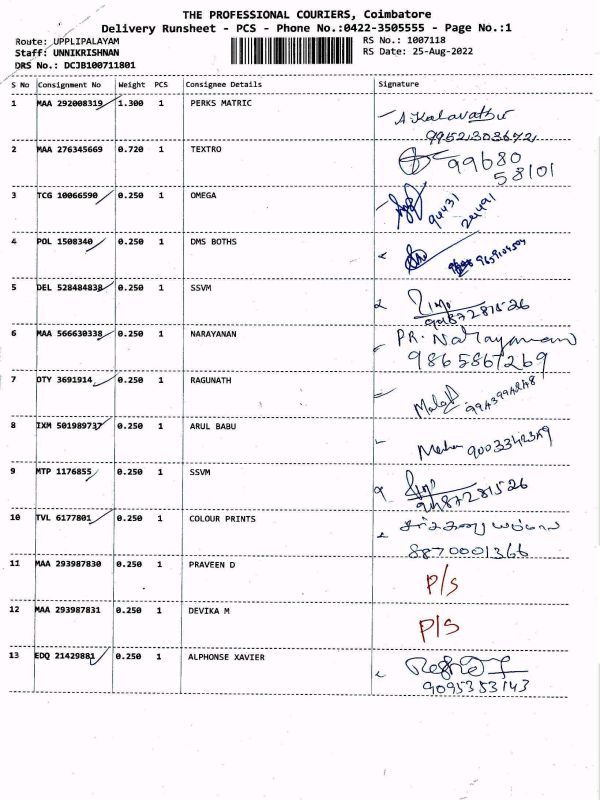 THE PROFESSIONAL COURIERS, Coimbatore
Delivery Runsheet - PCS - Phone No.:0422-3505555 - Page No.:1
Route: UPPLIPALAYAM RS No.: 1007118
Staff: UNNIKRISHNAN RS Date: 25-Aug-2022
DRS No.: DCJB100711801
S No Consignment No Weight PCS Consignee Details Signature
1 MAA 292008319 1.300 1 PERKS MATRIC A Kalavathy
9952303672
2 MAA 276345669 0.720 1 TEXTRO 99680
58101
3 TCG 10066590 0.250 1 OMEGA 94431
4 POL 1508340 0.250 1 DMS BOTHS
5 DEL 528484838 0.250 1 SSVM
6 MAA 566630338 0.250 1 NARAYANAN PR. Narayanan
9865867269
7 DTY 3691914 0.250 1 RAGUNATH
8 IXM 501989737 0.250 1 ARUL BABU
9 MTP 1176855 0.250 1 SSVM
10 TVL 6177801 0.250 1 COLOUR PRINTS
8870001366
11 MAA 293987830 0.250 1 PRAVEEN D P/S
12 MAA 293987831 0.250 1 DEVIKA M P/S
13 EDQ 21429881 0.250 1 ALPHONSE XAVIER
9095353143